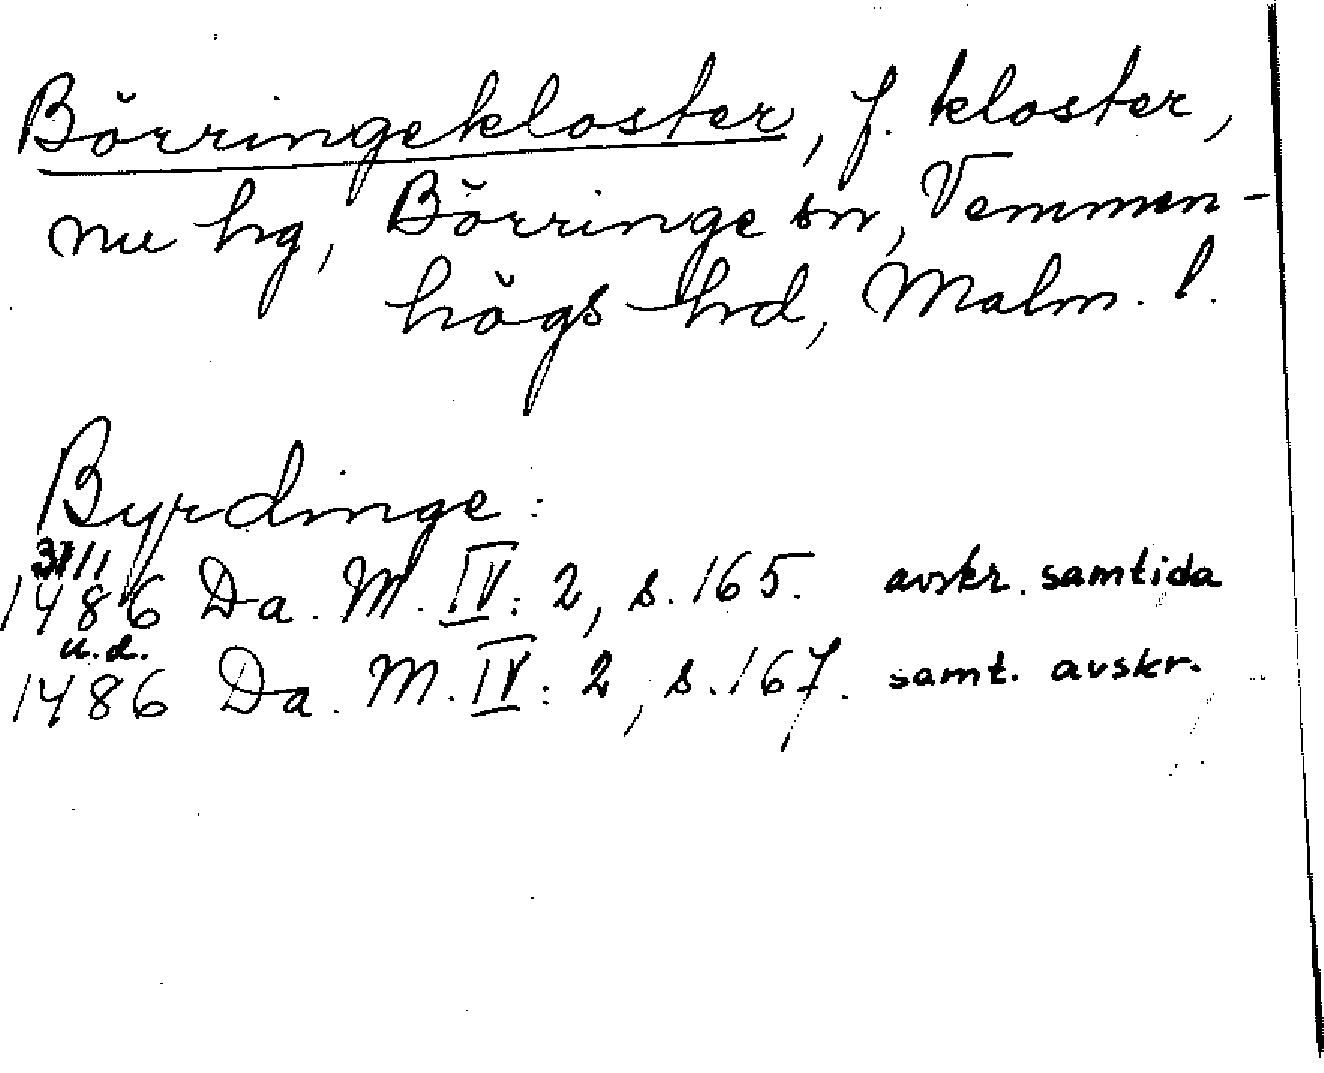 Börringekloster, f. kloster,
nu hg, Börringe sn, Vemmen-
högs hd, Malm. l.
Byrdinge:
31/1
1486 Da. M. IV: 2, s. 165. avskr. samtida
u.d.
1486 Da. M. IV: 2, s. 167. samt. avskr.